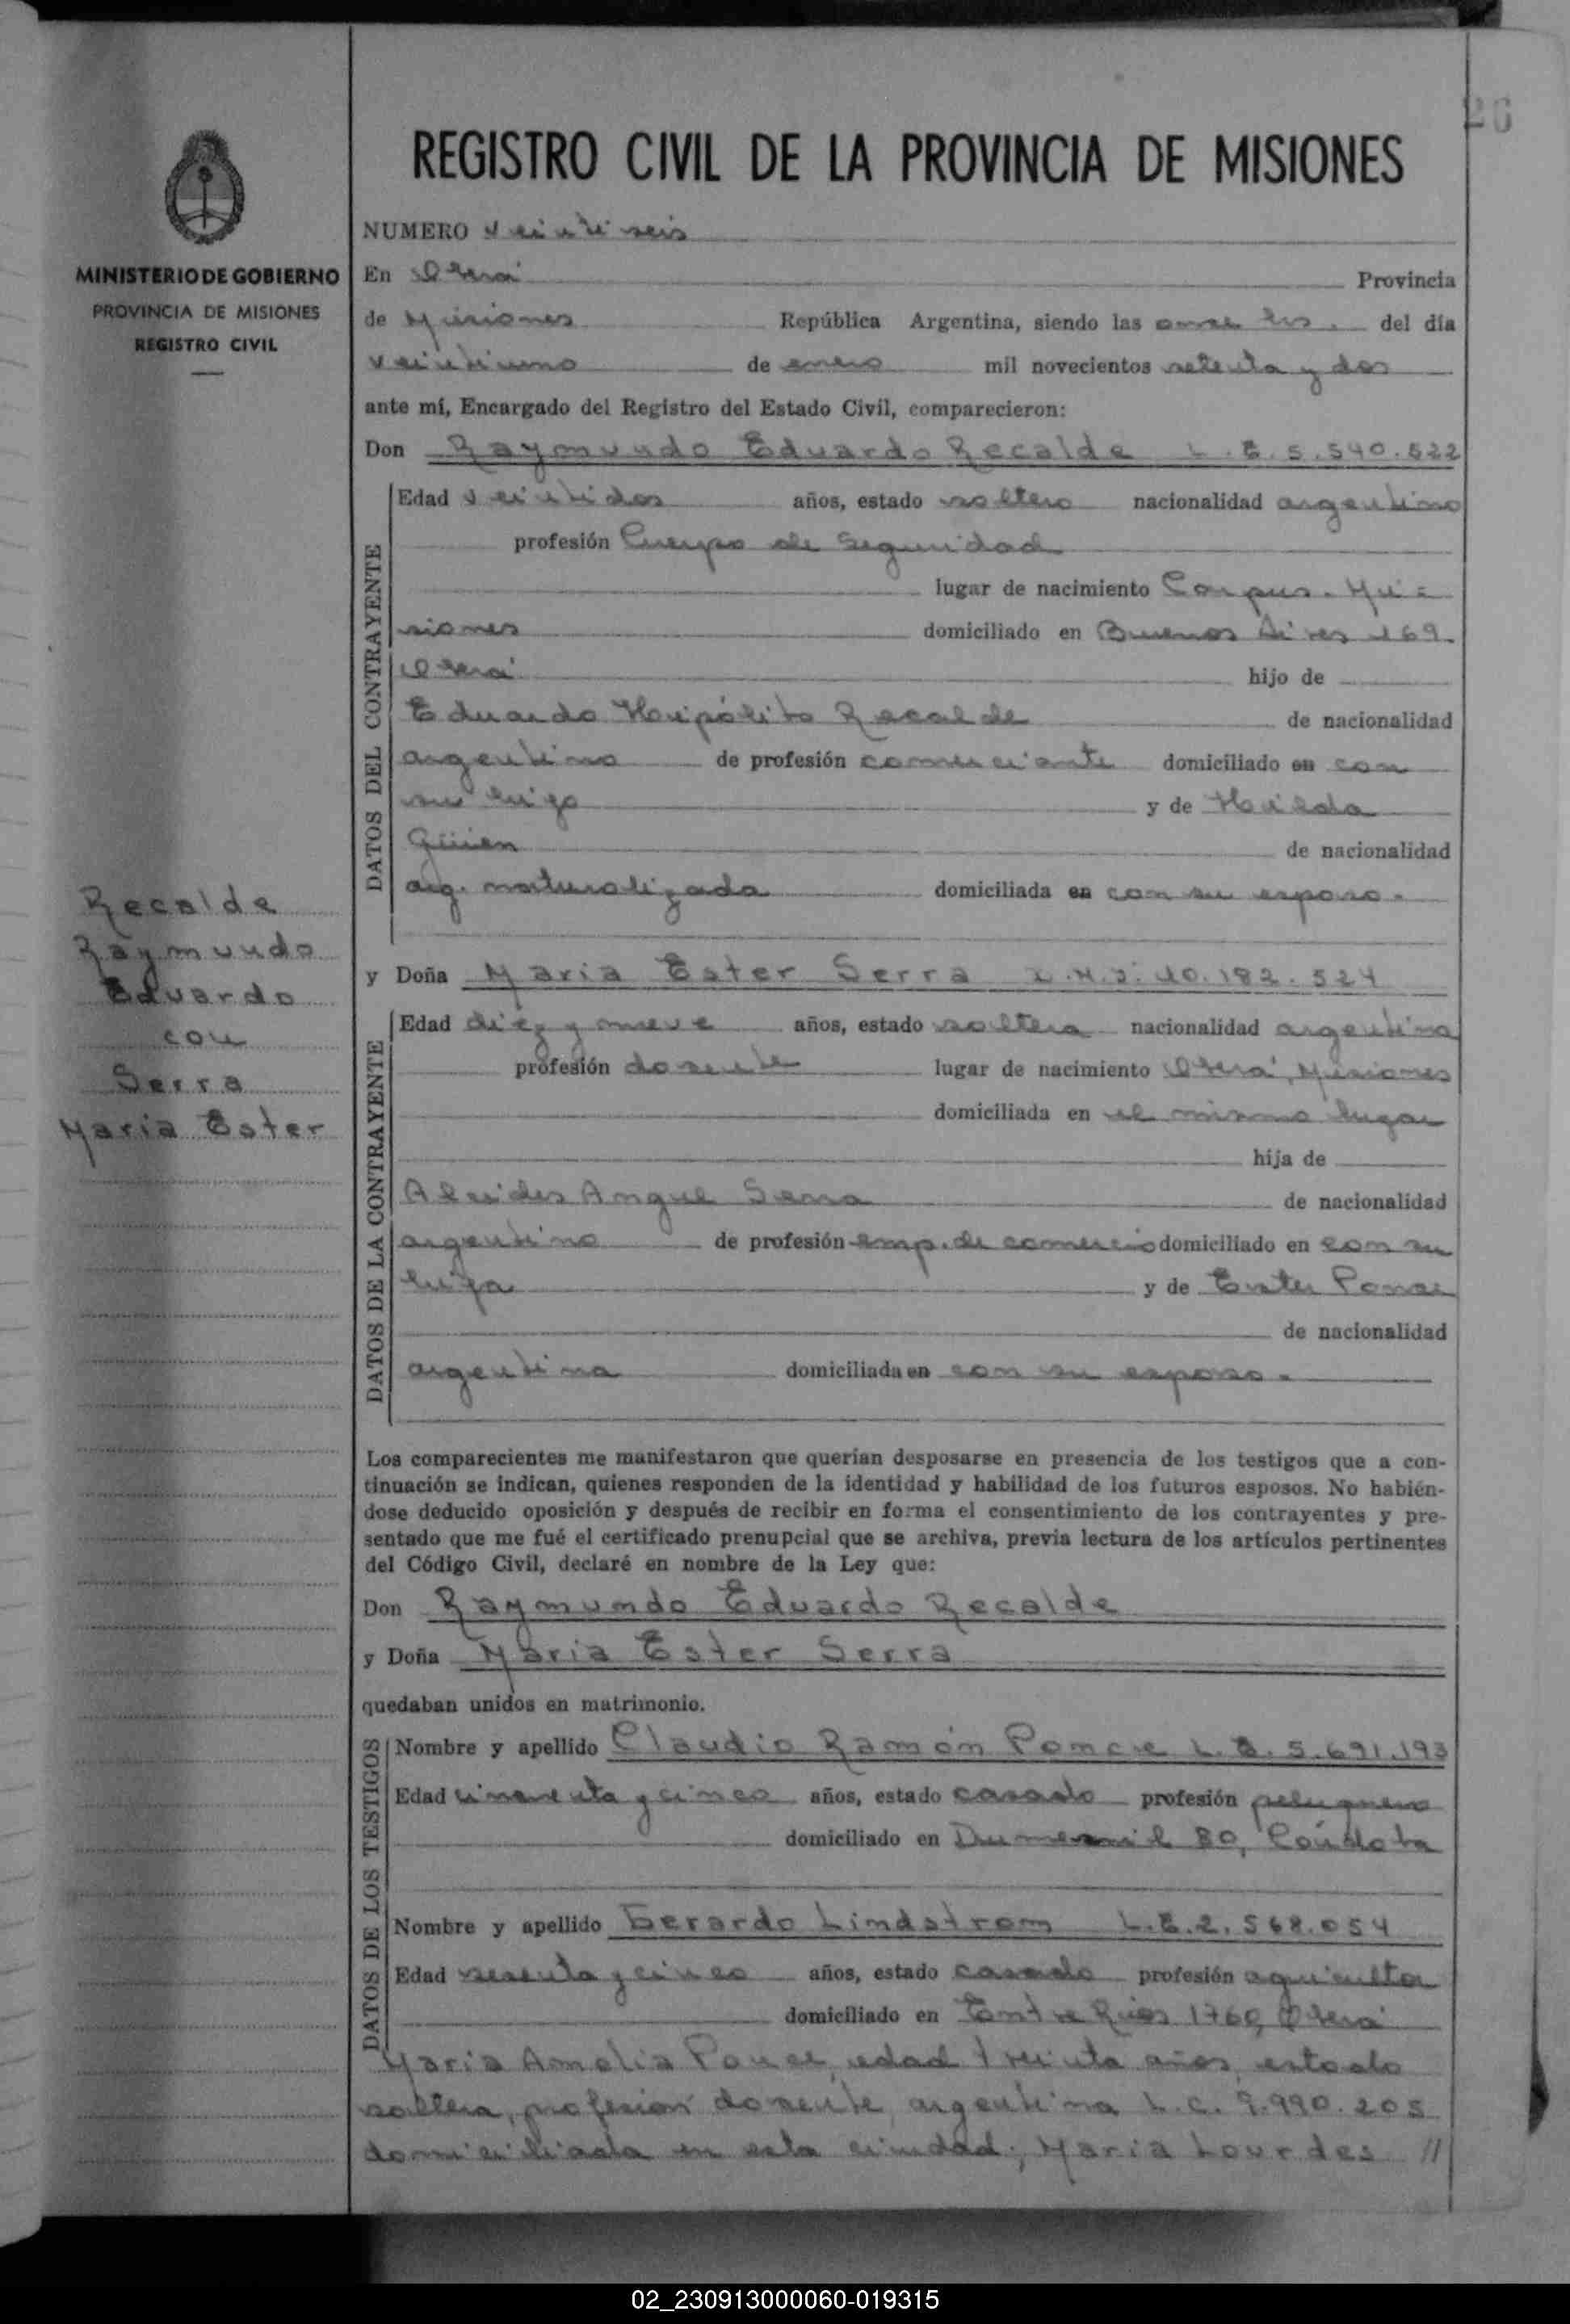 26
REGISTRO CIVIL DE LA PROVINCIA DE MISIONES
MINISTERIO DE GOBIERNO
PROVINCIA DE MISIONES
REGISTRO CIVIL
NUMERO veintiseis
En Oberá Provincia
de Misiones República Argentina, siendo las once hs. del día
veintiuno de enero mil novecientos setenta y dos
ante mí, Encargado del Registro del Estado Civil, comparecieron:
Don Raymundo Eduardo Recalde L.E. 5.540.522
DATOS DEL CONTRAYENTE
Edad veintidos años, estado soltero nacionalidad argentino
profesión Cuerpo de Seguridad
lugar de nacimiento Corpus. Mi=
siones domiciliado en Buenos Aires 169.
Oberá hijo de
Eduardo Hipólito Recalde de nacionalidad
argentino de profesión comerciante domiciliado en con
su hijo y de Hilda
de nacionalidad
arg. naturalizada domiciliada en con su esposo.
Recalde
Raymundo
Eduardo
con
Serra
Maria Ester
y Doña Maria Ester Serra 10.182.524
DATOS DE LA CONTRAYENTE
Edad diez y nueve años, estado soltera nacionalidad argentina
profesión docente lugar de nacimiento Oberá, Misiones
domiciliada en el mismo lugar
hija de
Alcides Angel Serra de nacionalidad
argentino de profesión emp. de comercio domiciliado en con su
hija y de Ester Ponce
de nacionalidad
argentina domiciliada en con su esposo.
Los comparecientes me manifestaron que querían desposarse en presencia de los testigos que a con-
tinuación se indican, quienes responden de la identidad y habilidad de los futuros esposos. No habién-
dose deducido oposición y después de recibir en forma el consentimiento de los contrayentes y pre-
sentado que me fué el certificado prenupcial que se archiva, previa lectura de los artículos pertinentes
del Código Civil, declaré en nombre de la Ley que:
Don Raymundo Eduardo Recalde
y Doña Maria Ester Serra
quedaban unidos en matrimonio.
DATOS DE LOS TESTIGOS
Nombre y apellido Claudio Ramón Ponce L.E. 5.691.193
Edad cincuenta y cinco años, estado casado profesión peluquero
domiciliado en 80, Córdoba
Nombre y apellido Gerardo Lindstrom L.E. 2.568.054
Edad sesenta y cinco años, estado casado profesión agricultor
domiciliado en Entre Rios 1760, Oberá
Maria Amelia Ponce, edad treinta años, estado
soltera, profesión docente, argentina L.C. 9.990.205
domiciliada en esta ciudad; Maria Lourdes //
02_230913000060-019315